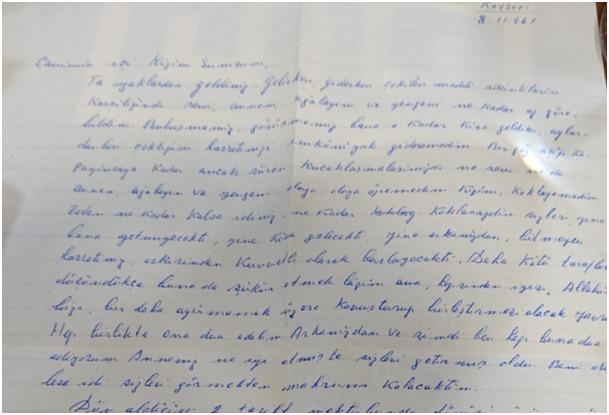 Kayseri
8.11.961
Canımın içi Kızım
Ta uzaklardan geldiniz. Gelirken, giderken çekilen maddi sıkıntıların
Karşılığında seni, annem, ağabeyin ve yengem ne kadar az göre-
bildim. Buluşmamız, görüşmemiz bana o kadar kısa geldiki, aylar-
dan beri çektiğim hasretinizi gideremedim. Bir göz açıp ka-
payıncaya kadar ancak süren kucaklaşmalarımızda ne seni ne de
annen, ağabeyin ve yengeni doya doya öpemedim Kızım, koklayamadım.
Zaten ne kadar kalsa idiniz, ne kadar koklasaydım sizleri, yine
bana yetmeyecekti, yine kısa gelecekti, yine arkanızdan, bitmeyen
hasretiniz, eskisinden kuvvetli olarak başlayacaktı. Daha kötü taraflar
düşündükçe buna da şükür etmek lâzım ama, hepsinden iyisi, Allahın
bizi, bir daha ayırmamak üzere kavuşturup birleştirmesi olacak
Hep birlikte ona dua edelim. Arkanızdan ve şimdi ben hep buna dua
ediyorum. Anneniz ne iyi etmiş te sizleri getirmiş oldu. Beni
lese idi sizleri görmekten mahrum kalacaktım.
Dün aldığım 2 mektubunda